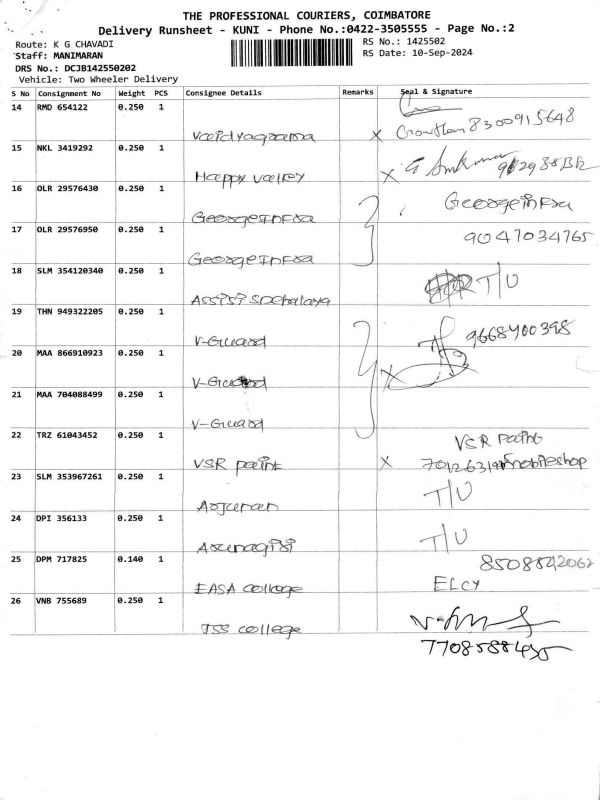 THE PROFESSIONAL COURIERS, COIMBATORE
Delivery Runsheet - KUNI - Phone No.:0422-3505555 - Page No.:2
Route: K G CHAVADI
RS No.: 1425502
Staff: MANIMARAN
RS Date: 10-Sep-2024
DRS No.: DCJB142550202
Vehicle: Two Wheeler Delivery
S No Consignment No Weight PCS Consignee Details Remarks Seal & Signature
14 RMD 654122 0.250 1
x 8300915648
15 NKL 3419292 0.250 1
Happy valley x
16 OLR 29576430 0.250 1
George Infra George infra
17 OLR 29576950 0.250 1
George Infra 9047034765
18 SLM 354120340 0.250 1
Assisi T/U
19 THN 949322205 0.250 1
V-Guard 9668400398
20 MAA 866910923 0.250 1
V-Guard x
21 MAA 704088499 0.250 1
V-Guard
22 TRZ 61043452 0.250 1 VSR Paint
VSR paint x mobileshop
23 SLM 353967261 0.250 1
Arjunan T/U
24 DPI 356133 0.250 1
T/U
25 DPM 717825 0.140 1
EASA college ELCY
26 VNB 755689 0.250 1
JSS college